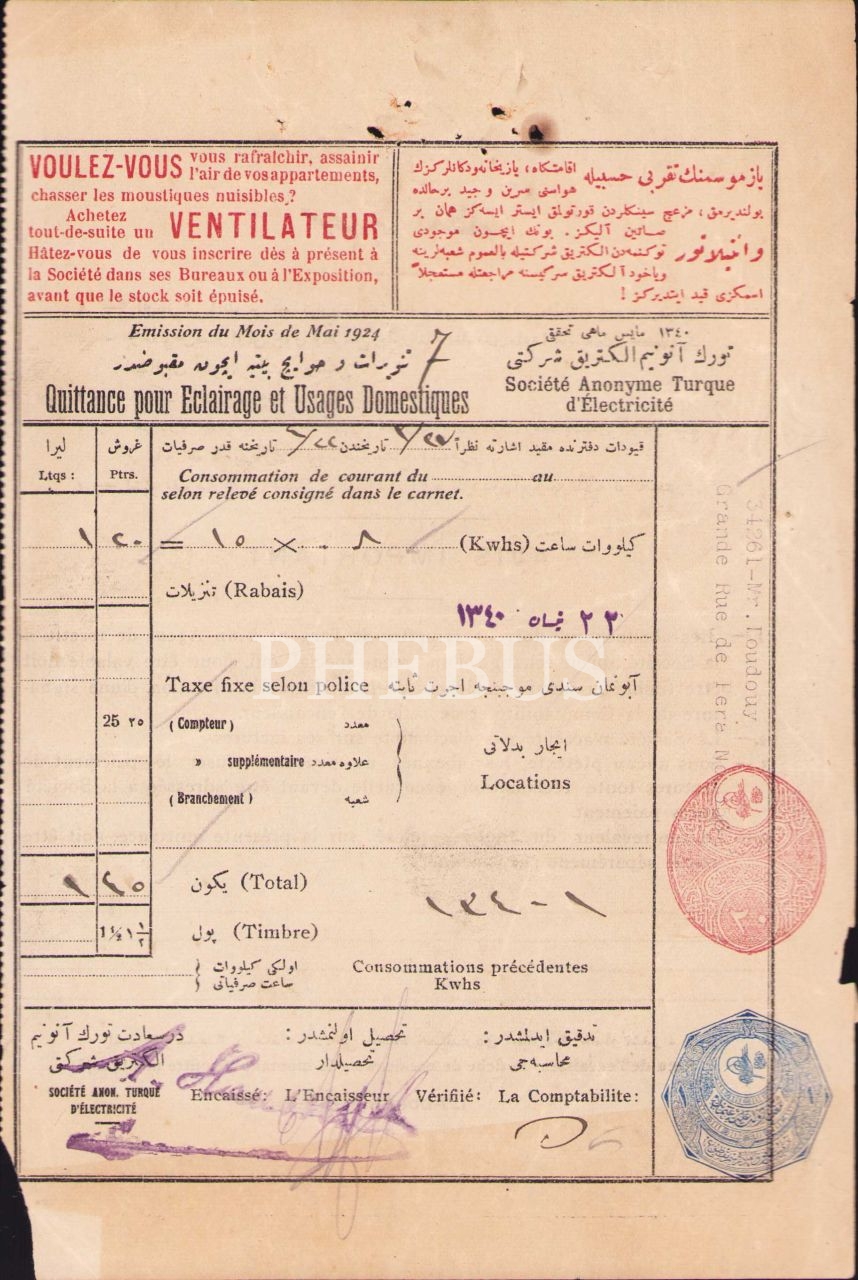 VOULEZ-VOUS vous rafraîchir, assainir
l'air de vos appartements,
chasser les moustiques nuisibles?
Achetez
tout-de-suite un VENTILATEUR
Hâtez-vous de vous inscrire dès à présent à
la Société dans ses Bureaux ou à l'Exposition,
avant que le stock soit épuisé.
ياز موسمنك تقربی حسبیله اقامتگاه، یازیخانه ودکانلرکزك
هواسنی سرین و جید بر حالده
بولندیرمق، مزعج سینکلردن قورتولمق ایستر ایسه‌کز همان بر
وانتیلاتور صاتین آلیکز. بونك ایچون موجودی
توکنمه‌دن الکتریق شرکتنك بالعموم شعبه‌لرینه
ویاخود آلکتریق سرکیسنه مراجعتله مستعجلاً
اسمکزی قید ایتدیرکز!
Emission du Mois de Mai 1924
7
تنویرات و حوایج بیتیه ایچون مقبوضدر
Quittance pour Eclairage et Usages Domestiques
١٣٤٠ مایس ماهی تحققی
تورك آنونیم الکتریق شرکتی
Société Anonyme Turque
d'Électricité
لیرا
غروش
Ltqs :
Ptrs.
قیودات دفترنده مقید اشارته نظراً تاریخندن تاریخنه قدر صرفیات
Consommation de courant du au
selon relevé consigné dans le carnet.
١ ٢٠ = ١٥ × ٠ ٨ (Kwhs) کیلووات ساعت
تنزیلات (Rabais)
٢٢ نیسان ١٣٤٠
PHEBUS
Taxe fixe selon police آبونمان سندی موجبنجه اجرت ثابته
25 ٢٥
(Compteur) معدد
» supplémentaire علاوه معدد
(Branchement) شعبه
ایجار بدلاتی
Locations
١ ٤٥ یکون (Total)
١٣٤٠-١
1½ ١ ١/٢ پول (Timbre)
اولکی کیلووات
ساعت صرفیاتی
Consommations précédentes
Kwhs
درسعادت تورك آنونیم
الکتریق شرکتی
SOCIÉTÉ ANON. TURQUE
D'ÉLECTRICITÉ
تحصیل اولنمشدر :
تحصیلدار
Encaissé: L'Encaisseur
تدقیق ایدلمشدر :
محاسبه‌جی
Vérifié: La Comptabilite:
34261-Mr. Toudouy
Grande Rue de Pera No
٢٠